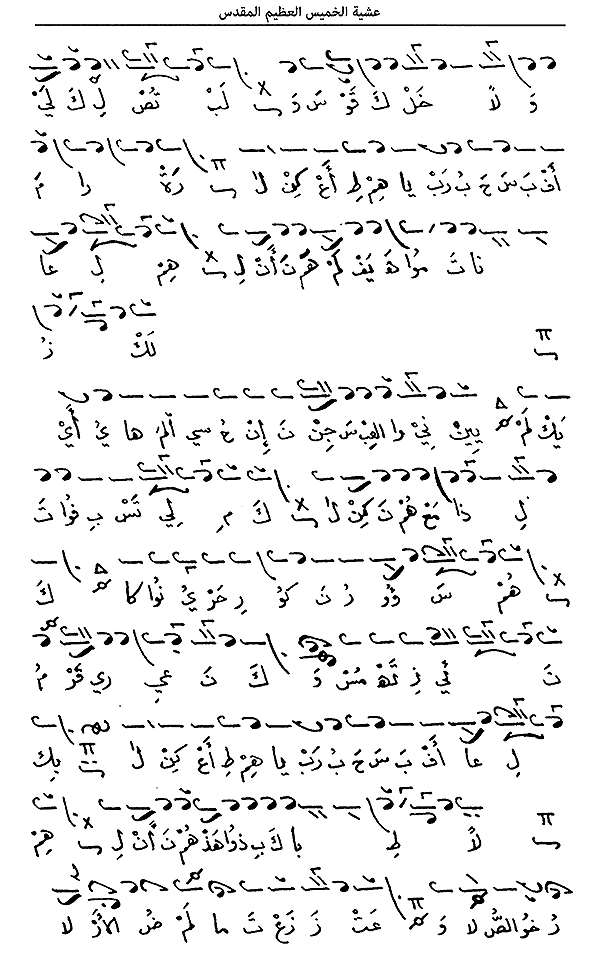 عشية الخميس العظيم المقدس
وَ لاً خَلْ كَ قَوْ سَ وَ لَبْ تُصْ لِ كَ لَيْ
أَفْ بَ سَ حَ بُ رَبْ يا هِمْ طِ أَعْ كِنْ لَ رَةً را مَ
نا تَ مُوا هَ يَفْ لَمْ هُمْ نَ أَنْ لِ هِمْ لِ عا
لَكْ زُ
يَكْ لَمْ يِينْ نِيْ وا العِبْ سَ جِنْ نَ إِنْ حُ سي أَلَمَ ها يُ أَيْ
لِ ذا مَعْ هُمْ نَ كِنْ لَ كَ مِ لِي تَسْ بِ فُوا تَ
هُمْ سَ ؤُو رُ نَ كُو رِ حَرْ يُ نُوا كا كَ
نَ لَي زِ تَهْ مُسْ وَ كَ نَ عي ري قَرْ مُ
لِ عا أَفْ بَ سَ حَ بُ رَبْ يا هِمْ طِ أَعْ كِنْ لَ بِكَ
لاً طِ با كَ بِ ذُوا هَذْ هُمْ نَ أَنْ لِ هِمْ
رُ خُو الصُّ لا وَ عَتْ زَ زَعْ تَ ما لَمْ ضُ الأَرْ لا